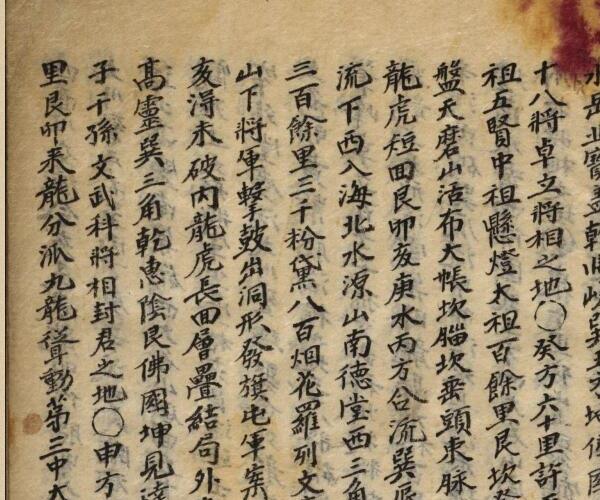 水岳並寶盖乾
十八將卓立將相之地〇癸方六十里許
祖五賢中祖懸燈太祖百餘里艮坎
盤天磨山活布大帳坎腦坎垂頭束脉
龍虎短回艮卯亥庚水丙方合流巽辰
流下西入海北水源山南德堂西三角
三百餘里三千粉黛八百烟花羅列文
山下將軍擊鼓出洞形發旗屯軍案
亥淂未破內龍虎長回層疊結局外
高靈巽三角乾惠陰艮佛國坤見達
子千孫文武科將相封君之地〇申方
里艮卯来龍分派九龍聳動第三中大